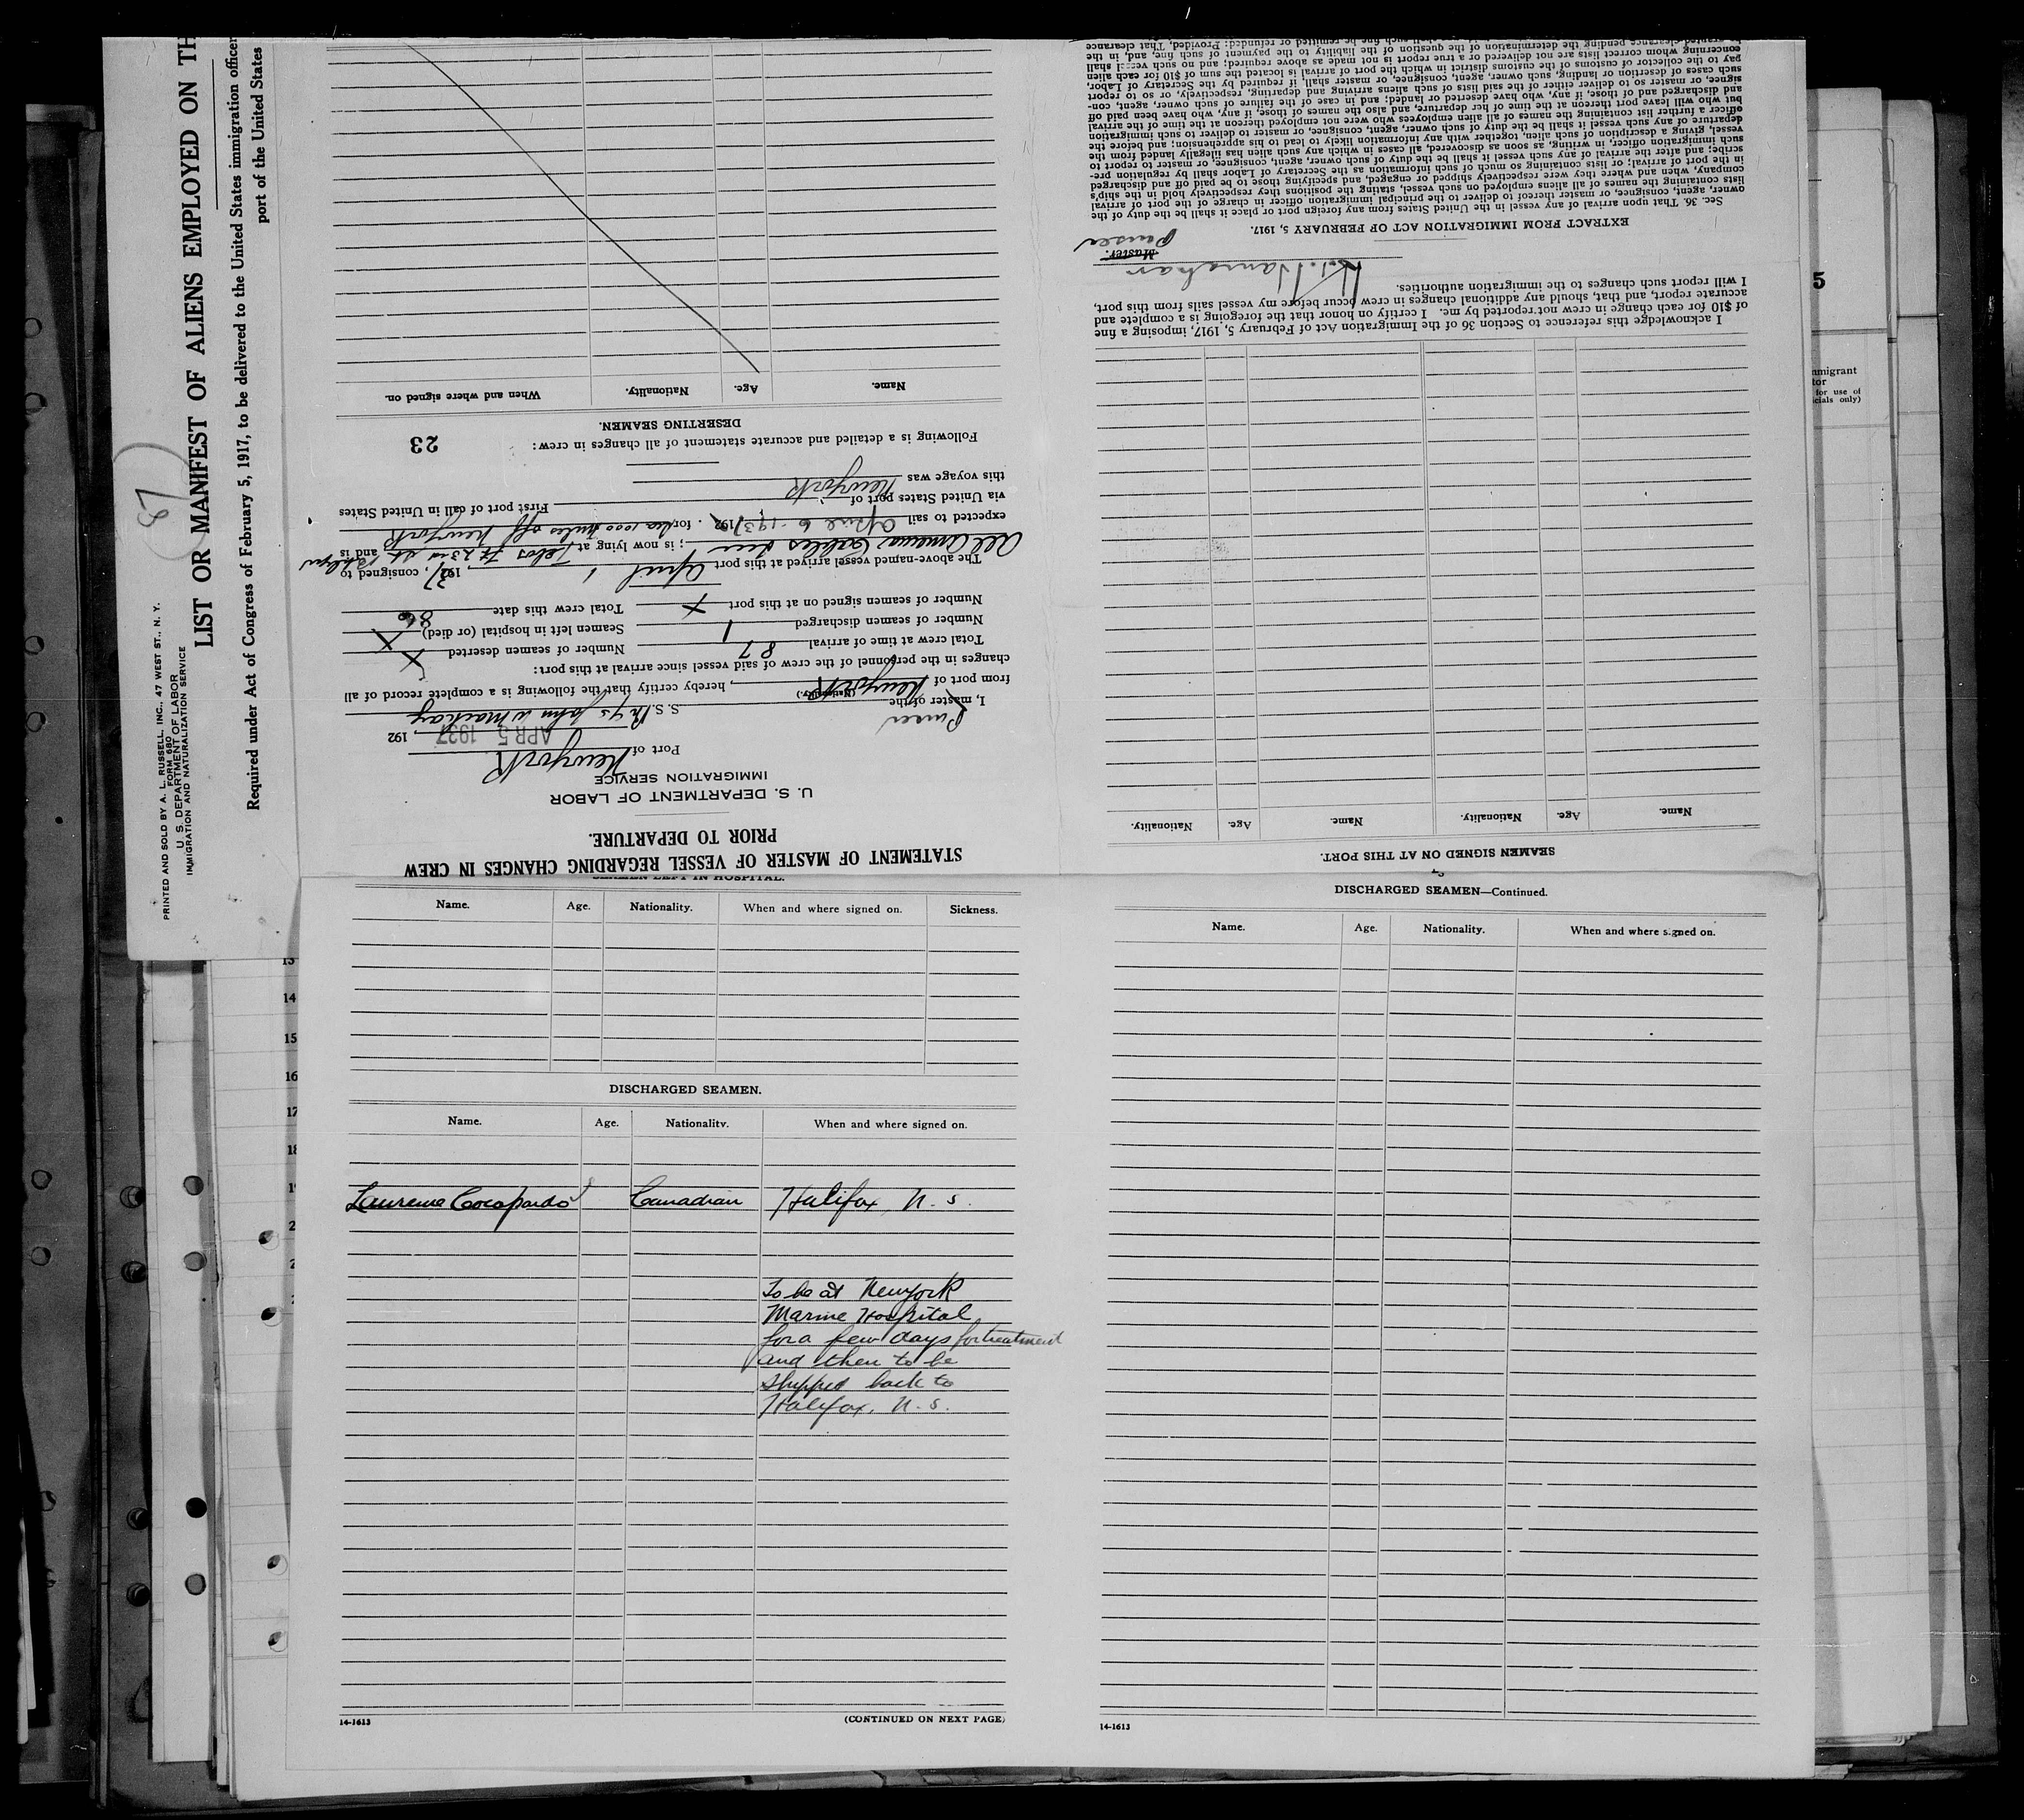 PRINTED AND SOLD BY A. L. RUSSELL, INC., 47 WEST ST., N. Y.
FORM 680
U. S. DEPARTMENT OF LABOR
IMMIGRATION AND NATURALIZATION SERVICE
LIST OR MANIFEST OF ALIENS EMPLOYED ON TH
Required under Act of Congress of February 5, 1917, to be delivered to the United States immigration officer
port of the United States
STATEMENT OF MASTER OF VESSEL REGARDING CHANGES IN CREW
PRIOR TO DEPARTURE.
U. S. DEPARTMENT OF LABOR
IMMIGRATION SERVICE
Port of New York
APR 5 1937, 192
Purser
I, master of the S. S. John W Mackay
(Nationality.)
from port of New York, hereby certify that the following is a complete record of all
changes in the personnel of the crew of said vessel since arrival at this port:
Total crew at time of arrival 87 Number of seamen deserted X
Number of seamen discharged 1 Seamen left in hospital (or died) X
Number of seamen signed on at this port X Total crew this date 86
The above-named vessel arrived at this port April 1, 1937, consigned to
All America Cables Inc; is now lying at Tebos Ft 23rd St Bklyn and is
expected to sail April 6 - 1937. for sea 1000 miles off New York
via United States port of First port of call in United States
this voyage was New York
Following is a detailed and accurate statement of all changes in crew: 23
DESERTING SEAMEN.
Name. Age. Nationality. When and where signed on.
SEAMEN LEFT IN HOSPITAL.
Name. Age. Nationality. When and where signed on. Sickness.
DISCHARGED SEAMEN.
Name. Age. Nationality. When and where signed on.
Laurence Cocopardo Canadian Halifax N. S.
To be at New York
Marine Hospital
for a few days for treatment
and then to be
shipped back to
Halifax. N. S.
14-1613 (CONTINUED ON NEXT PAGE)
DISCHARGED SEAMEN—Continued.
Name. Age. Nationality. When and where signed on.
14-1613
SEAMEN SIGNED ON AT THIS PORT.
Name. Age. Nationality. Name. Age. Nationality.
I acknowledge this reference to Section 36 of the Immigration Act of February 5, 1917, imposing a fine
of $10 for each change in crew not reported by me. I certify on honor that the foregoing is a complete and
accurate report, and that, should any additional changes in crew occur before my vessel sails from this port,
I will report such changes to the immigration authorities.
Hanrahan
Master.
Purser
EXTRACT FROM IMMIGRATION ACT OF FEBRUARY 5, 1917.
Sec. 36. That upon arrival of any vessel in the United States from any foreign port or place it shall be the duty of the
owner, agent, consignee, or master thereof to deliver to the principal immigration officer in charge of the port of arrival
lists containing the names of all aliens employed on such vessel, stating the positions they respectively hold in the ship's
company, when and where they were respectively shipped or engaged, and specifying those to be paid off and discharged
in the port of arrival; or lists containing so much of such information as the Secretary of Labor shall by regulation pre-
scribe; and after the arrival of any such vessel it shall be the duty of such owner, agent, consignee, or master to report to
such immigration officer, in writing, as soon as discovered, all cases in which any such alien has illegally landed from the
vessel, giving a description of such alien, together with any information likely to lead to his apprehension; and before the
departure of any such vessel it shall be the duty of such owner, agent, consignee, or master to deliver to such immigration
officer a further list containing the names of all alien employees who were not employed thereon at the time of the arrival
but who will leave port thereon at the time of her departure, and also the names of those, if any, who have been paid off
and discharged and of those, if any, who have deserted or landed; and in case of the failure of such owner, agent, con-
signee, or master so to deliver either of the said lists of such aliens arriving and departing, respectively, or so to report
such cases of desertion or landing, such owner, agent, consignee, or master shall, if required by the Secretary of Labor,
pay to the collector of customs of the customs district in which the port of arrival is located the sum of $10 for each alien
concerning whom correct lists are not delivered or a true report is not made as above required; and no such vessel shall
be granted clearance pending the determination of the question of the liability to the payment of such fine, and, in the
such fine be remitted or refunded: Provided, That clearance
13
14
15
16
17
18
5
mmigrant
tor
for use of
icials only)